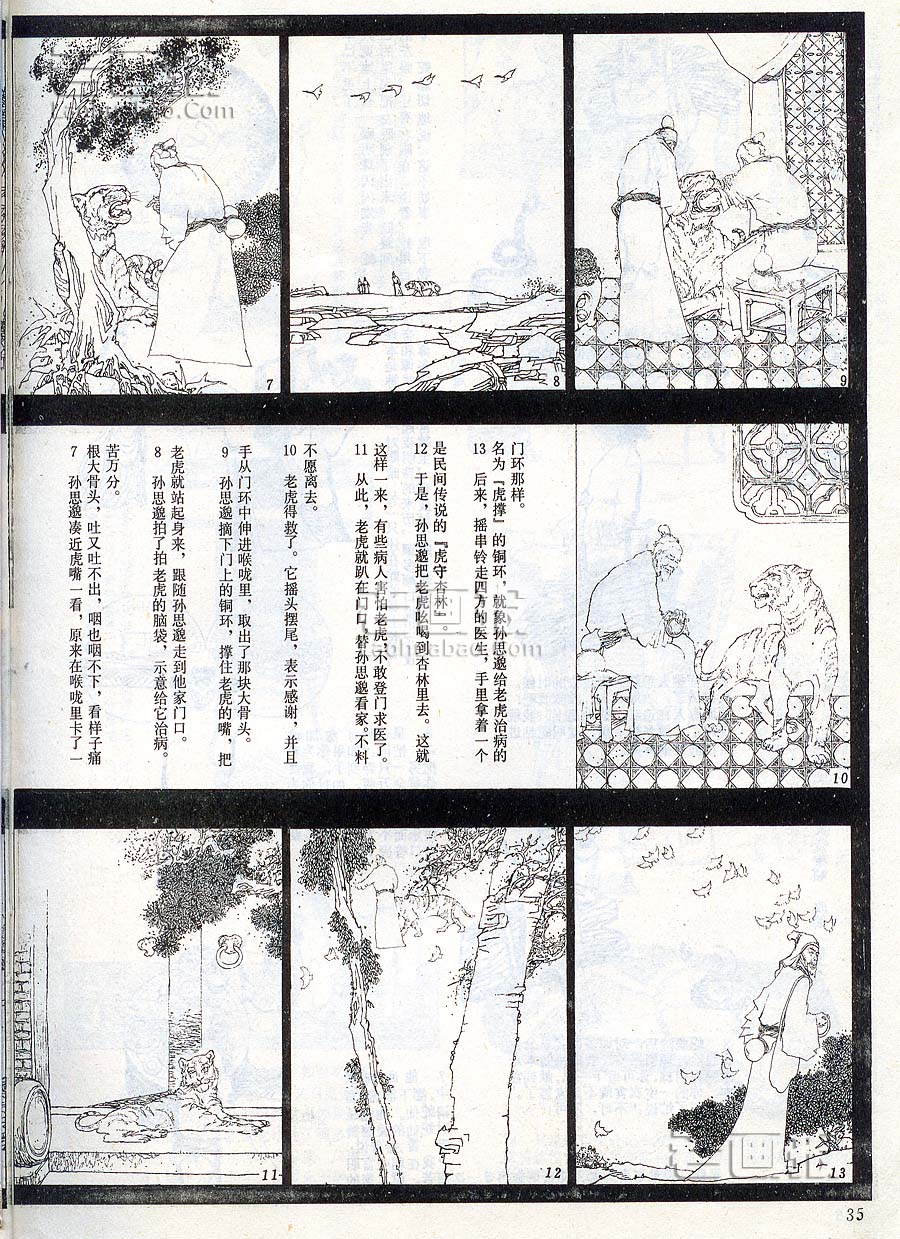 7
8
9
7 孙思邈凑近虎嘴一看，原来在喉咙里卡了一
根大骨头，吐又吐不出，咽也咽不下，看样子痛
苦万分。
8 孙思邈拍了拍老虎的脑袋，示意给它治病。
老虎就站起身来，跟随孙思邈走到他家门口。
9 孙思邈摘下门上的铜环，撑住老虎的嘴，把
手从门环中伸进喉咙里，取出了那块大骨头。
10 老虎得救了。它摇头摆尾，表示感谢，并且
不愿离去。
11 从此，老虎就趴在门口，替孙思邈看家。不料
这样一来，有些病人害怕老虎，不敢登门求医了。
12 于是，孙思邈把老虎吆喝到杏林里去。这就
是民间传说的『虎守杏林』。
13 后来，摇串铃走四方的医生，手里拿着一个
名为『虎撑』的铜环，就象孙思邈给老虎治病的
门环那样。
10
11
12
13
35
老画报
laohuabao.Com
老画报